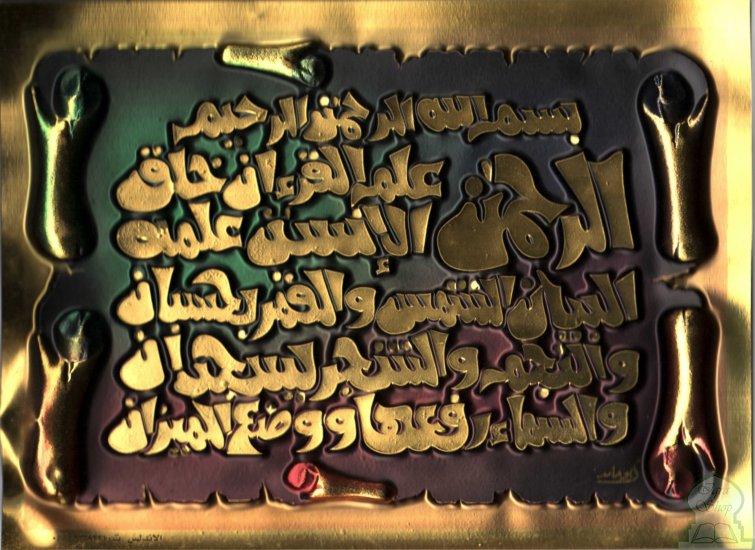 بسم الله الرحمن الرحيم
الرحمن علم القرءان خلق
الإنسن علمه
البيان الشمس والقمر بحسبان
والنجم والشجر يسجدان
والسماء رفعها ووضع الميزان
الاندلس